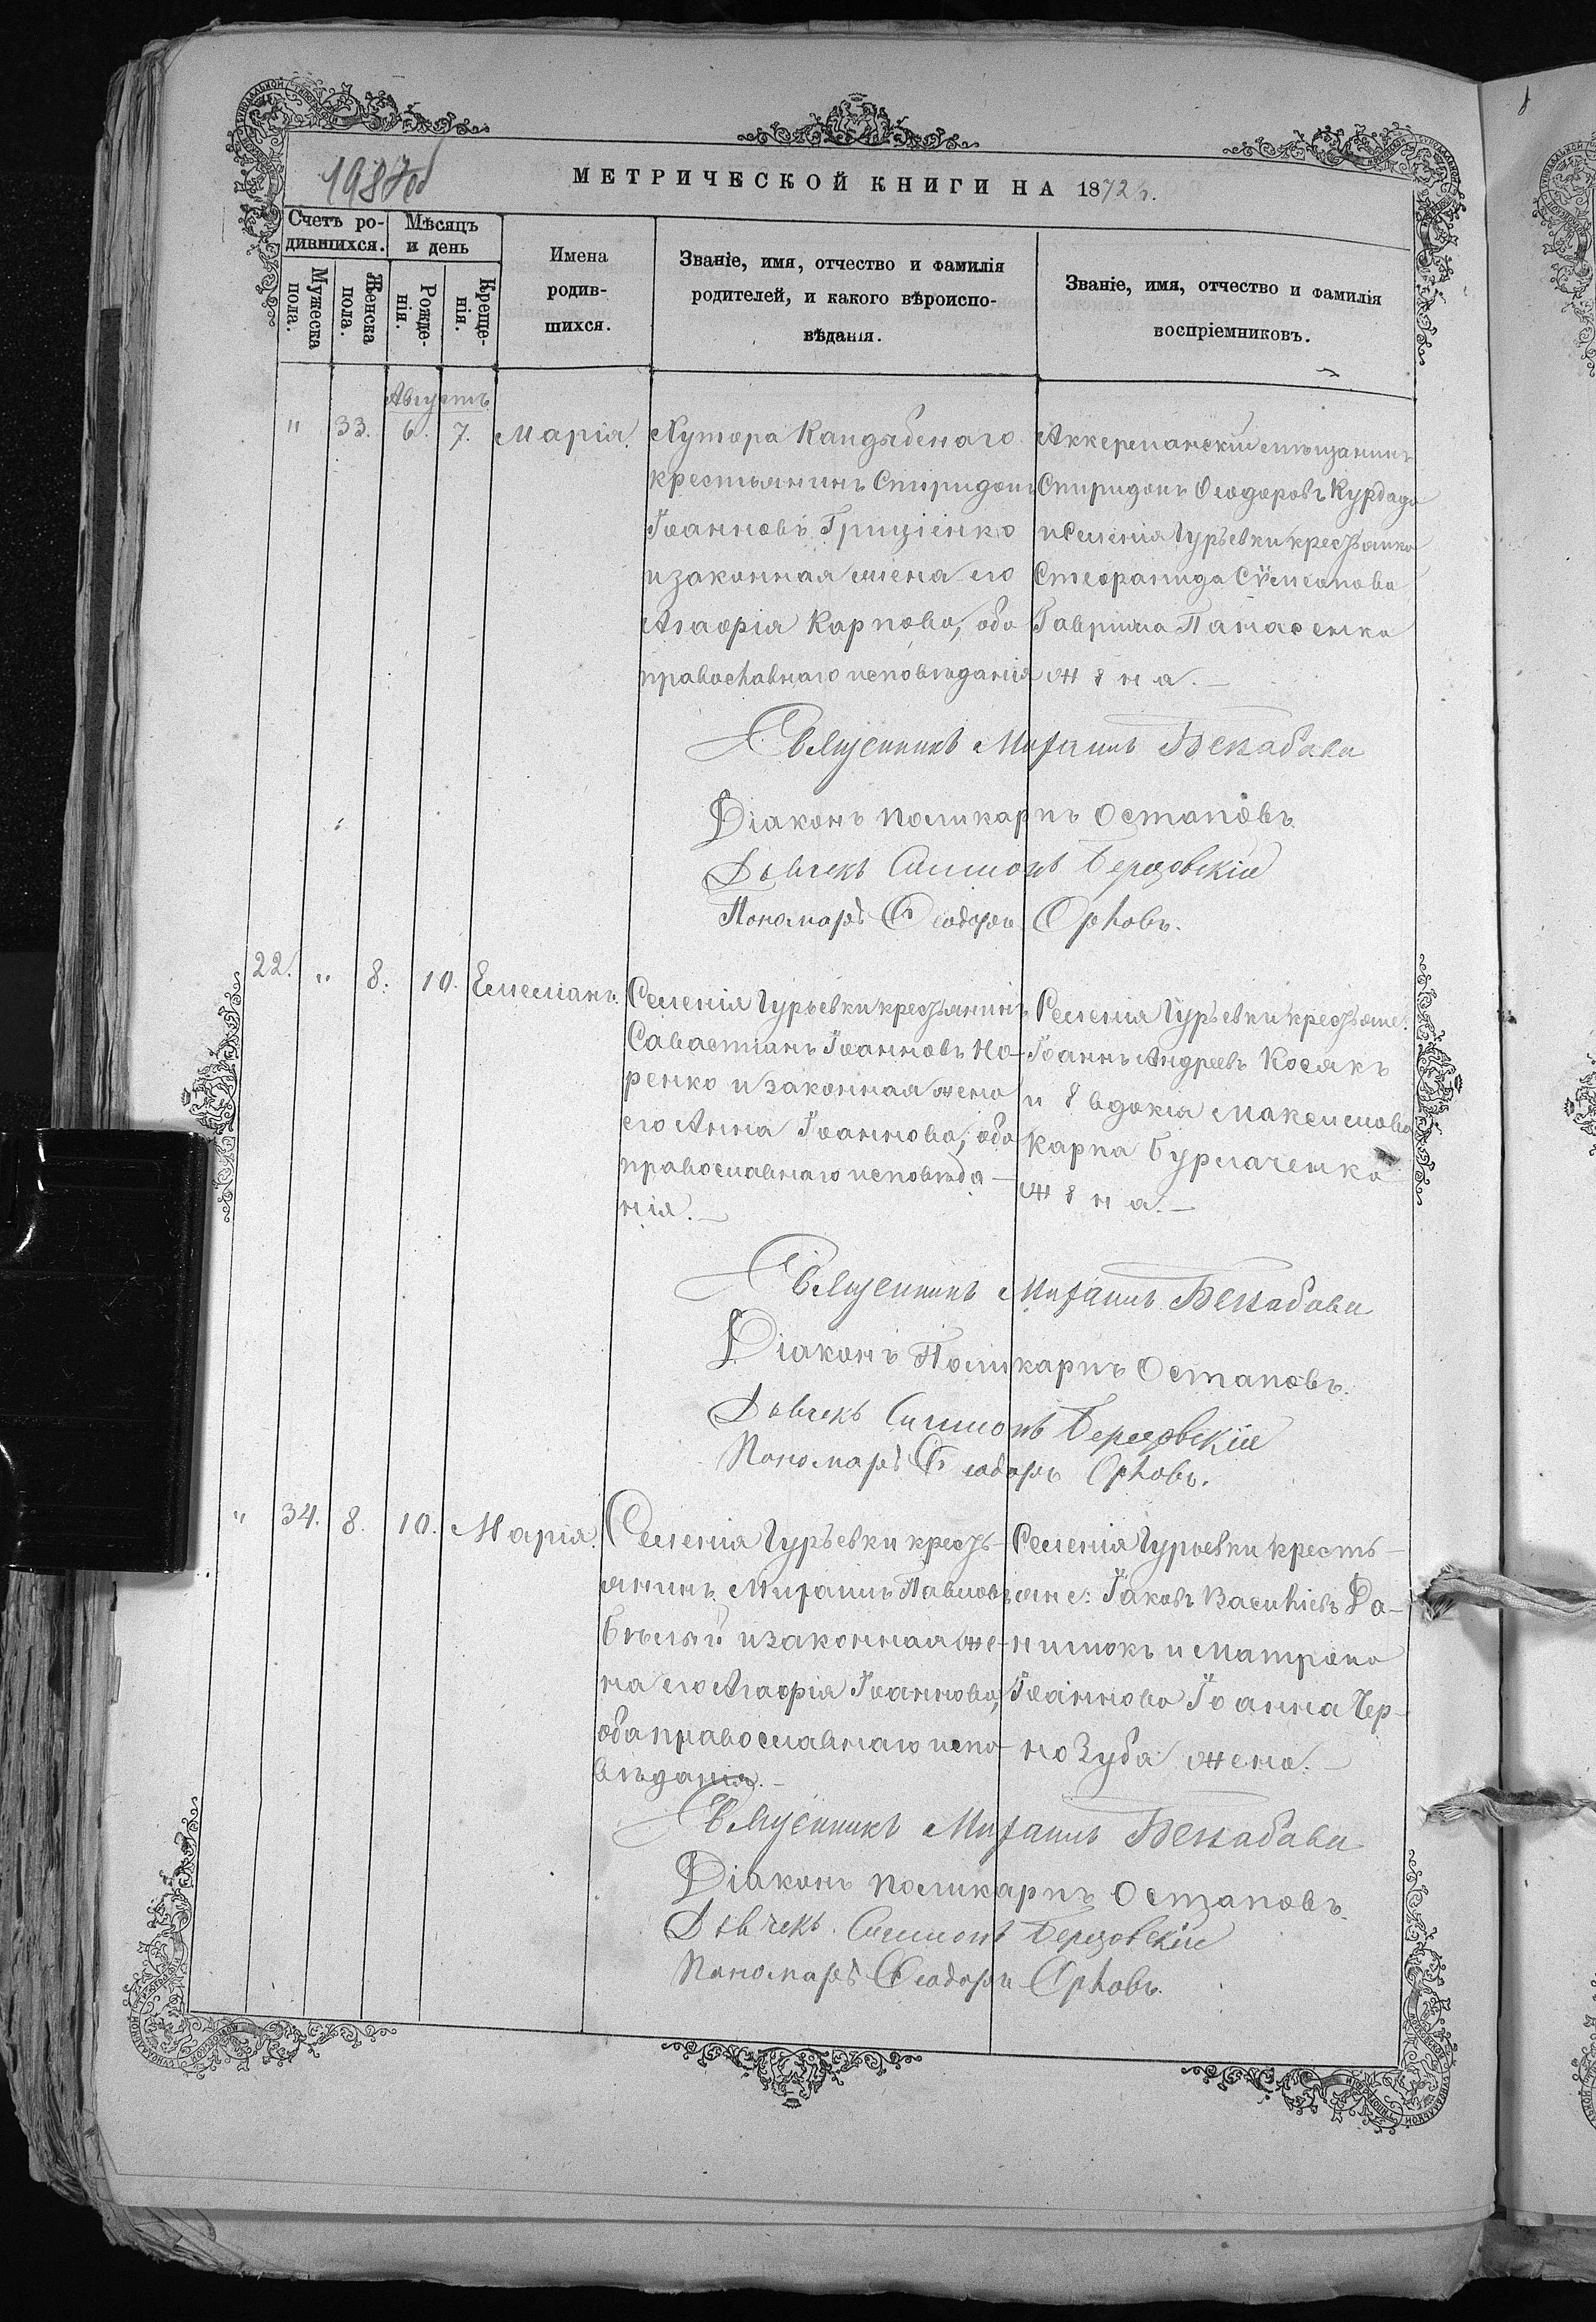 МЕТРИЧЕСКОЙ КНИГИ НА 1872 г.
Счетъ ро-
дившихся.
Мѣсяцъ
и день
Мужеска
пола.
Женска
пола.
Рожде-
нія.
Креще-
нія.
Имена
родив-
шихся.
Званіе, имя, отчество и фамилія
родителей, и какого вѣроиспо-
вѣданія.
Званіе, имя, отчество и фамилія
воспріемниковъ.
Августъ
" 33. 6. 7. Марія.
Хутора
крестьянинъ Спиридонъ
Іоанновъ Гриціенко
и законная жена его
Агафія Карпова, оба
православнаго исповѣданія
Аккерманскій мѣщанинъ
Спиридонъ Ѳеодоровъ
и Селенія Гурьевки крестьянка
Стефанида
Гавриила Панасенка
жена.
Священникъ Михаилъ
Діаконъ Поликарпъ Остаповъ.
Дьячекъ Симеонъ Березовскій
Пономарь Ѳеодоръ Орловъ.
22. " 8. 10. Емеліанъ.
Селенія Гурьевки крестьянинъ
Савастіанъ Іоанновъ Но-
ренко и законная жена
его Анна Іоаннова, оба
православнаго исповѣда-
нія.
Селенія Гурьевки крестьяне:
Іоаннъ Андреевъ Косякъ
и Евдокія Максимова
Карпа Бурлаченка
жена.
Священникъ Михаилъ
Діаконъ Поликарпъ Остаповъ.
Дьячекъ Симеонъ Березовскій
Пономарь Ѳеодоръ Орловъ.
" 34. 8. 10. Марія.
Селенія Гурьевки кресть-
янинъ Михаилъ Павловъ
и законная же-
на его Агафія Іоаннова,
оба православнаго испо-
вѣданія.
Селенія Гурьевки кресть-
яне: Іаковъ Васильевъ Да-
нилюкъ и Матрона
Іоаннова Іоанна Чер-
нозуба жена.
Священникъ Михаилъ
Діаконъ Поликарпъ Остаповъ.
Дьячекъ Симеонъ Березовскій
Пономарь Ѳеодоръ Орловъ.